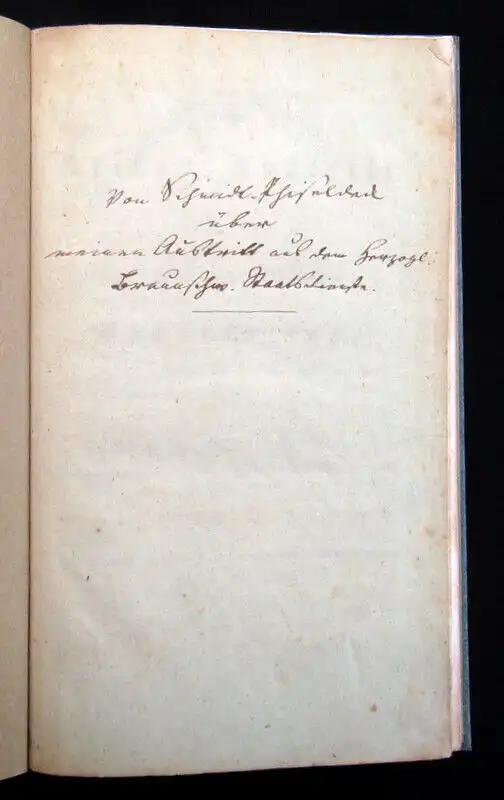 von Schmidt-Phiseldeck
über
meinen Austritt aus dem Herzogl:
Braunschw. Staatsdienste.